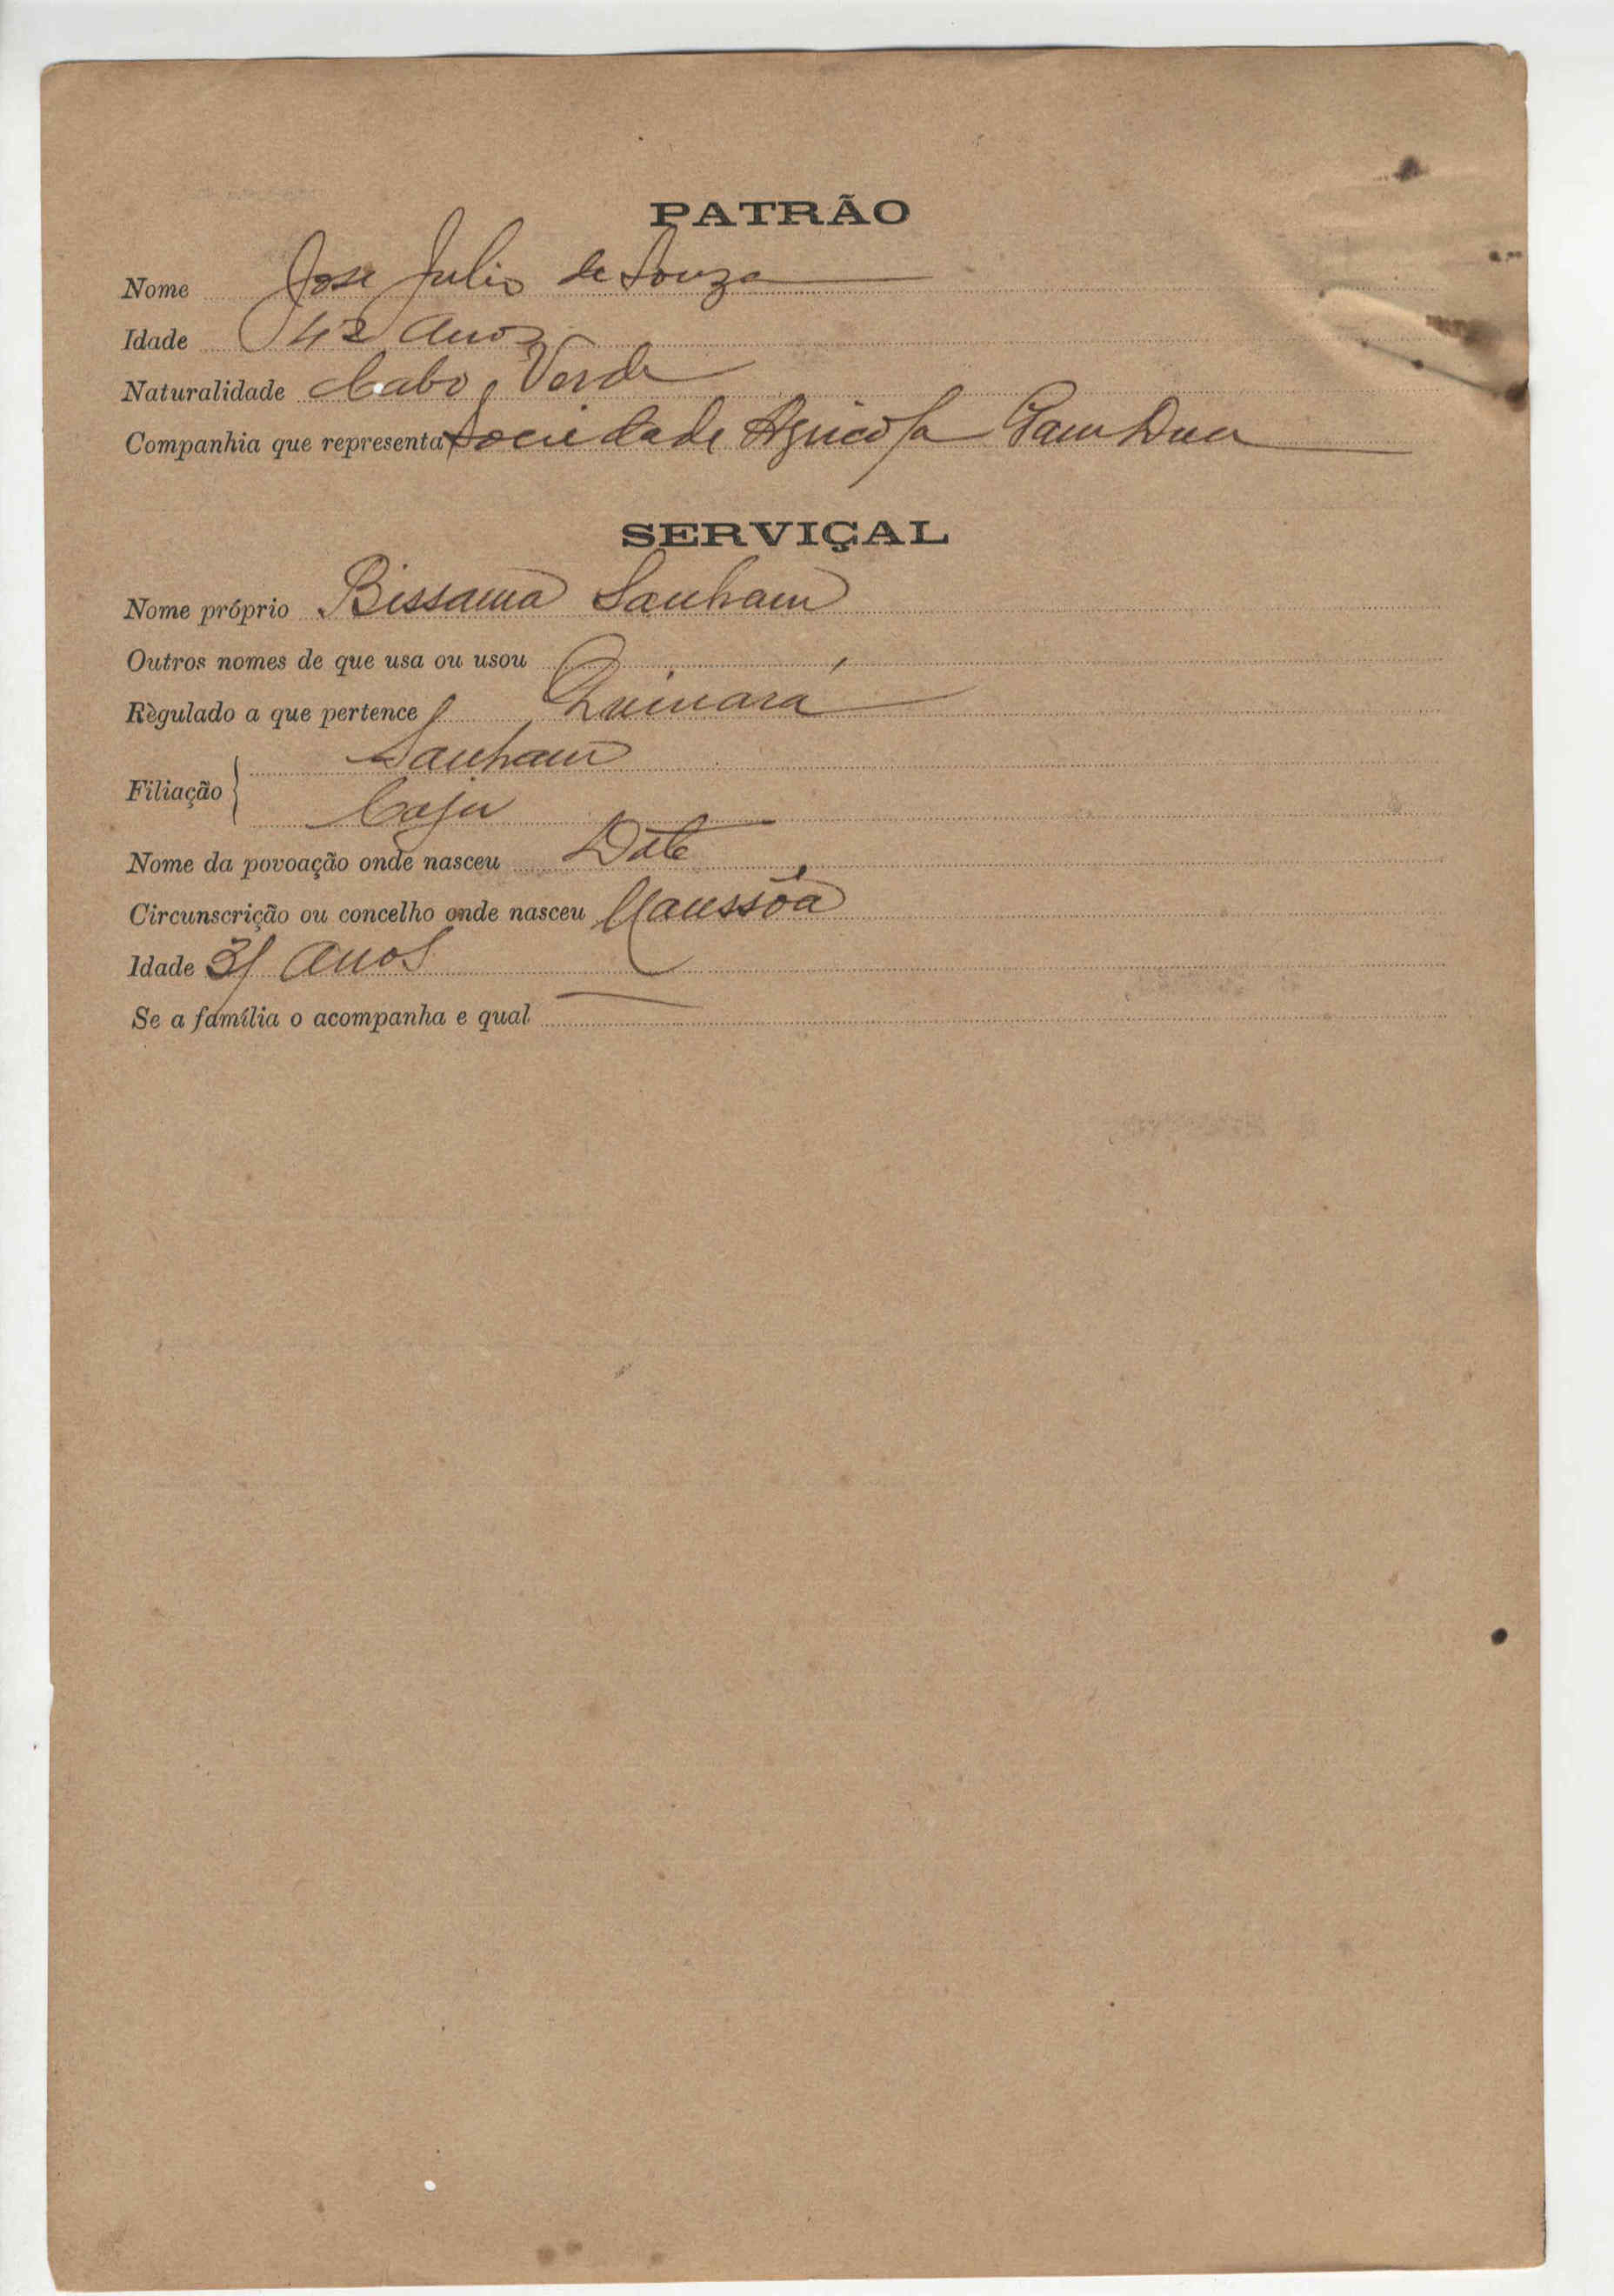 PATRÃO
Nome Jose Julio de Souza
Idade 42 anos
Naturalidade Cabo Verde
Companhia que representa Sociedade Agricola Gambiel
SERVIÇAL
Nome próprio Bissama Sanham
Outros nomes de que usa ou usou
Règulado a que pertence Quinará
Filiação Sanham
Caju
Nome da povoação onde nasceu Date
Circunscrição ou concelho onde nasceu Manssôa
Idade 31 anos
Se a família o acompanha e qual